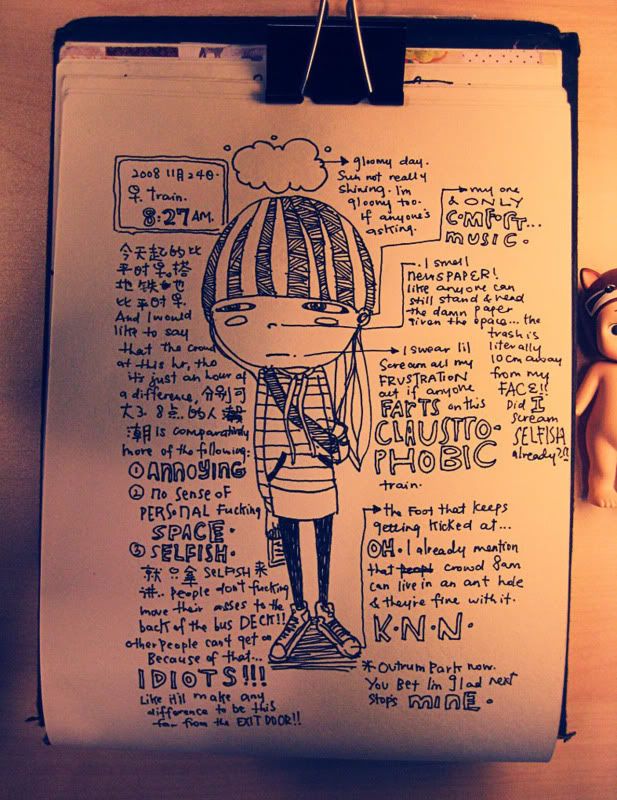 2008 11月24日.
早 train.
8:27AM.
今天起的比
平时早.搭
地铁也
比平时早.
And I would
like to say
that the crowd
at this hr, tho
it's just an hour of
a difference, 分别可
大了. 8点. 的人潮
潮 is comparatively
more of the following:
① ANNOYING
② no sense of
PERSONAL Fucking
SPACE.
③ SELFISH.
就 只拿 SELFISH 来
讲.. people don't fucking
move their asses to the
back of the bus DECK!!
other people can't get on
Because of that...
IDIOTS!!!
Like it'll make any
difference to be this
far from the EXIT DOOR!!
gloomy day.
Sun not really
shining. I'm
gloomy too.
If anyone's
asking.
my one
& ONLY
COMFORT...
MUSIC.
I smell
NEWSPAPER!
like anyone can
still stand & read
the damn paper
given the space... the
trash is
literally
10cm away
from my
FACE!!
Did I
scream
SELFISH
already?!!
I swear I'll
Scream all my
FRUSTRATION
out if anyone
FARTS on this
CLAUSTRO-
PHOBIC
train.
the FOOT that keeps
getting kicked at...
OH. I already mention
that crowd 8am
can live in an ant hole
& they're fine with it.
K.N.N.
* Outrum Park now.
You Bet I'm glad next
stop's MINE.